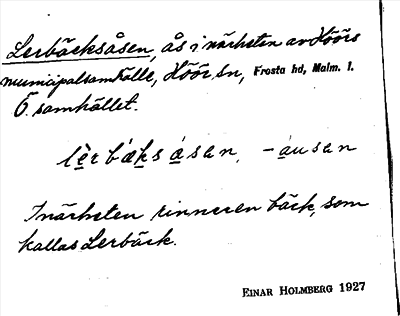 Lerbäcksåsen, ås i närheten av Höörs
municipalsamhälle, Höör sn, Frosta hd, Malm. l.
Ö. samhället.
lèrbæksåsan, -ausan
I närheten rinner en bäck, som
kallas Lerbäck.
EINAR HOLMBERG 1927